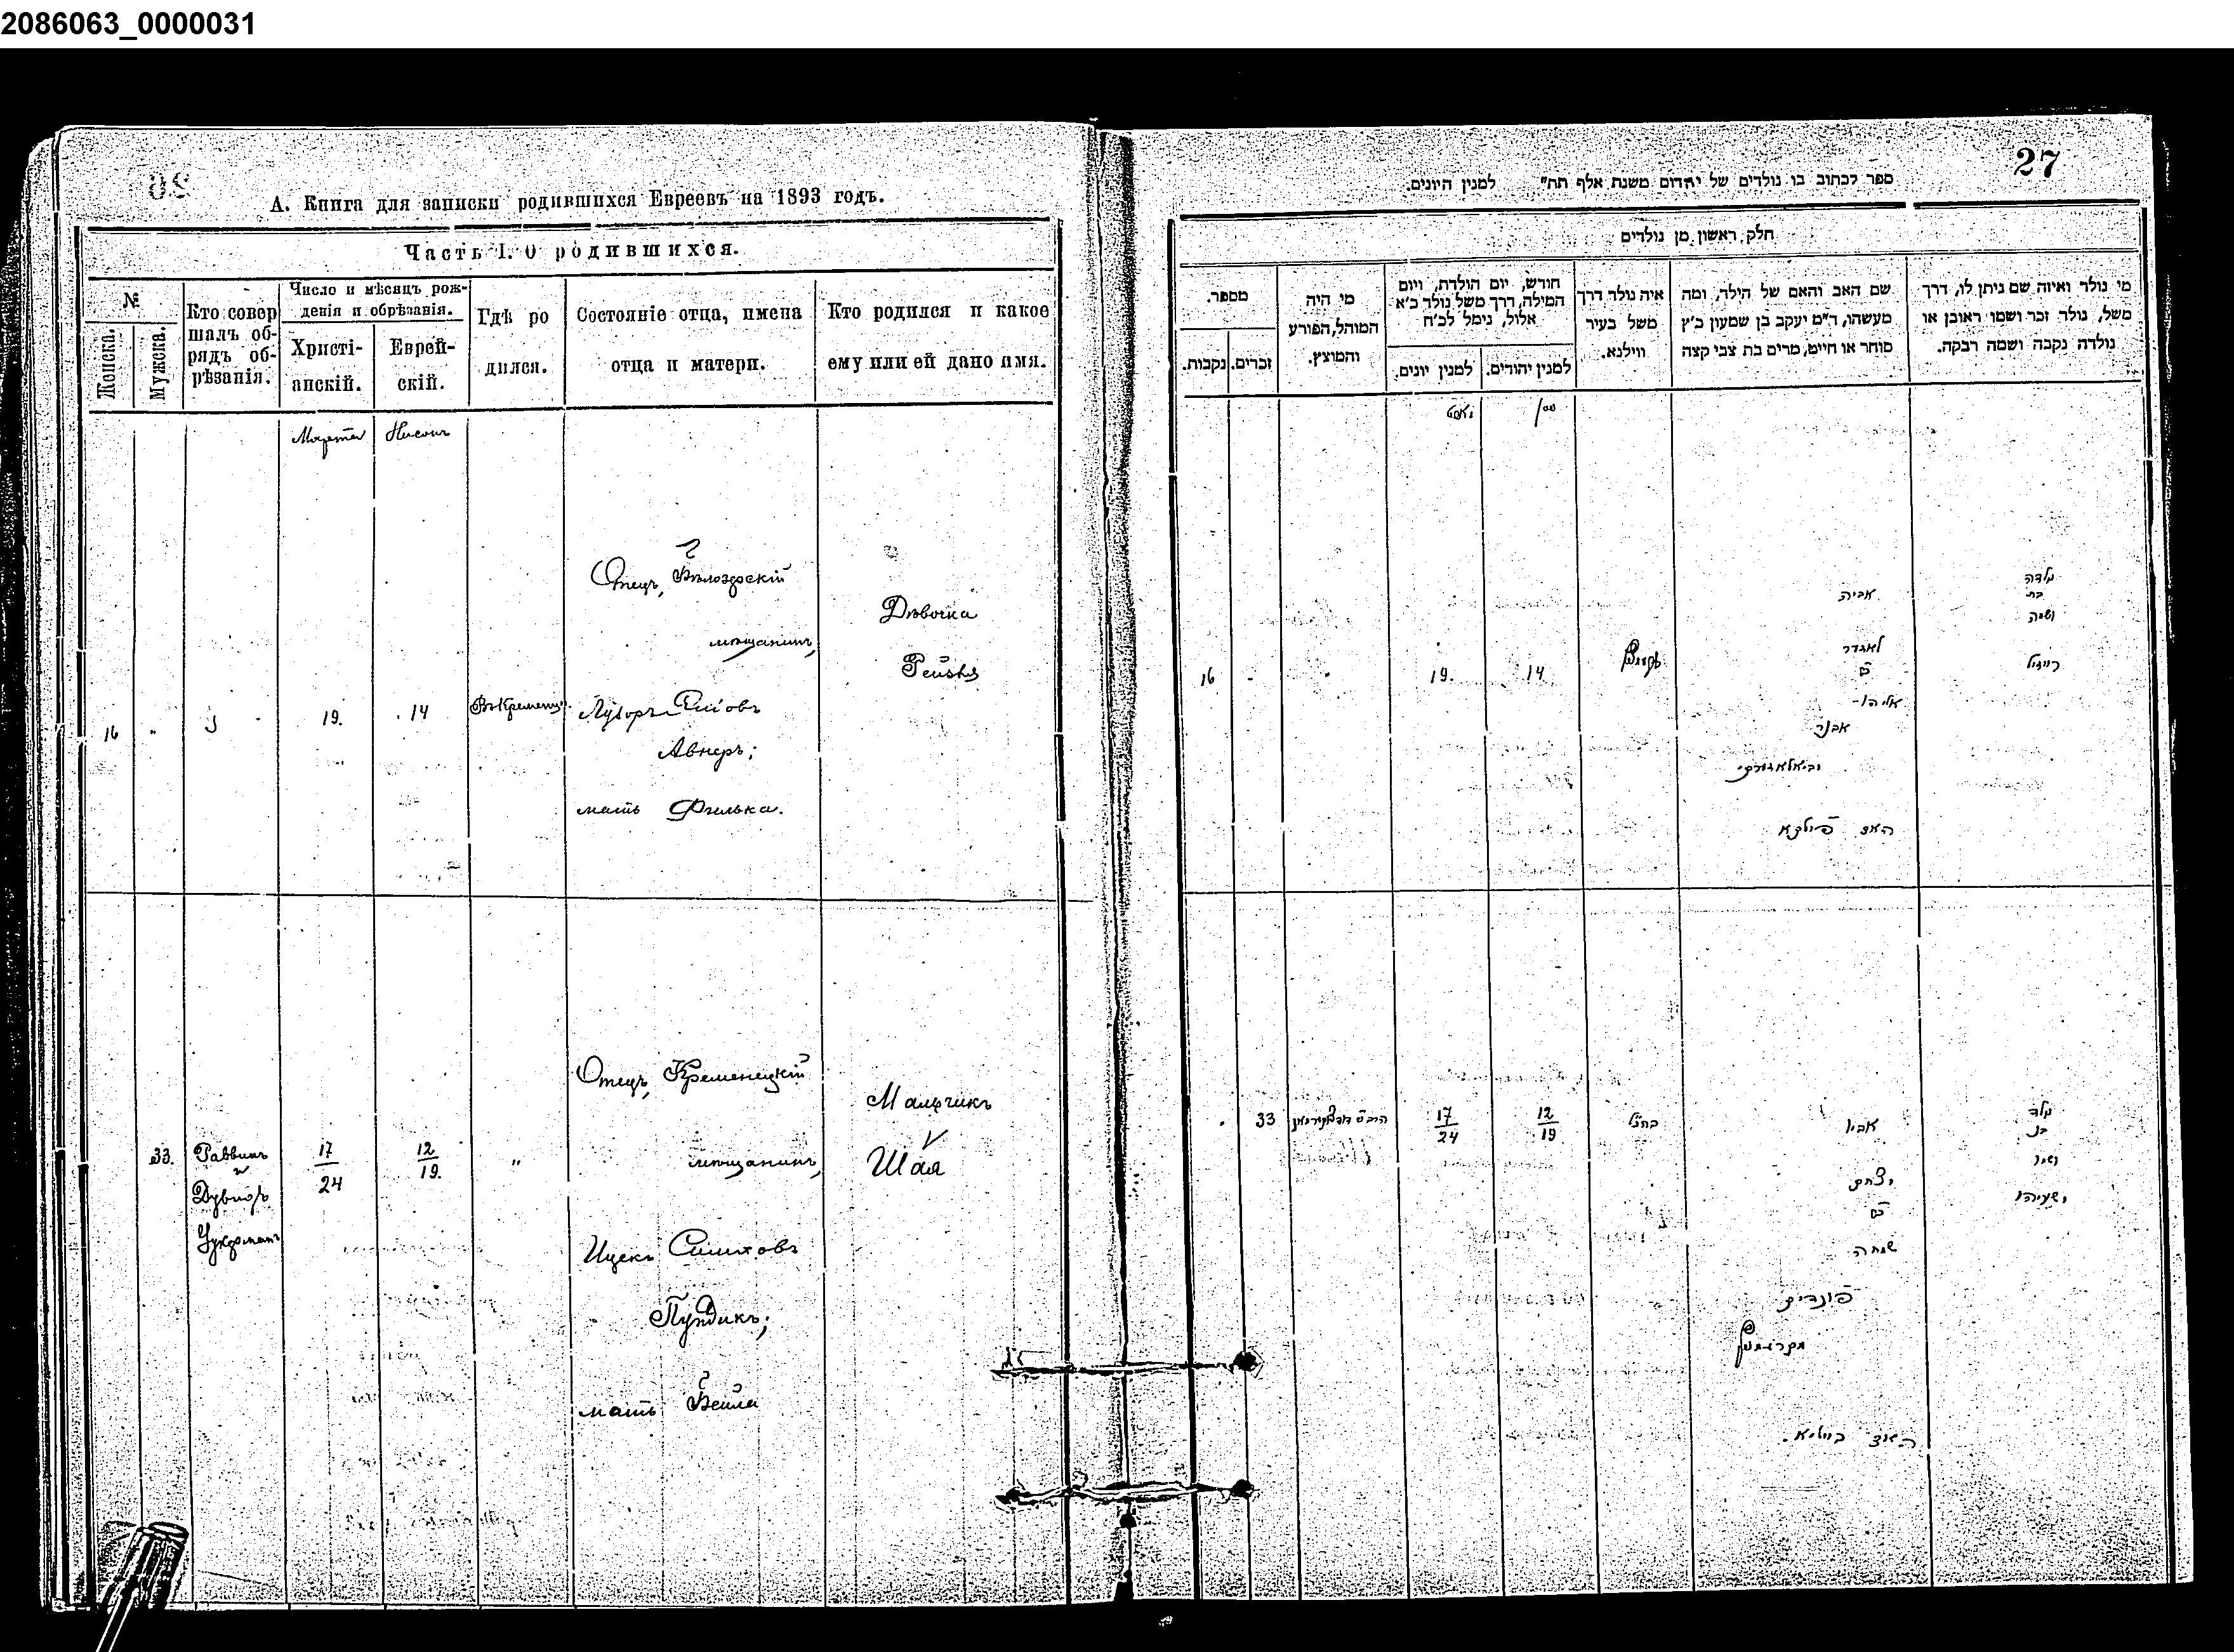 2086063_0000031
А. Книга для записки родившихся Евреевъ на 1893 годъ.
Часть I. О родившихся.
№
Женска.
Мужска.
Кто совер
шалъ об-
рядъ об-
рѣзанія.
Число и мѣсяцъ рож-
денія и обрѣзанія.
Христі-
анскій.
Еврей-
скій.
Гдѣ ро
дился.
Состояніе отца, имена
отца и матери.
Кто родился и какое
ему или ей дано имя.
Марта
Нисонъ
16
19.
14
Отецъ,
мѣщанинъ,
Авнеръ;
мать
Дѣвочка
33.
Раввинъ
и
17
24
12
19.
"
Отецъ, Кременецкій
мѣщанинъ,
Ицекъ
Пундикъ;
мать Бейла
Мальчикъ
Шая
27
ספר לכתוב בו נולדים של יהדום משנת אלף תת״ למנין היונים.
חלק ראשון מן נולדים
מספר.
נקבות.
זכרים.
מי היה
המוהל, הפורע
והמוצץ.
חודש, יום הולדת, ויום
המילה, דרך משל נולד כ׳א
אלול, נימל לכ׳ח
למנין יונים.
למנין יהודים.
איה נולד דרך
משל בעיר
ווילנא.
שם האב והאם של הילד, ומה
מעשהו, ד״מ יעקב בן שמעון כ׳ץ
סוחר או חייט, מרים בת צבי קצה
מי נולד ואיזה שם ניתן לו, דרך
משל, נולד זכר ושמו ראובן או
נולדה נקבה ושמה רבקה.
16
19.
14
אביה
אליהו
אבנר
נולדה
בת
ושמה
רייזיל
33
17
24
12
19
אביו
יצחק
שמחה
פונדיק
נולד
בן
ושמו
ישעיהו